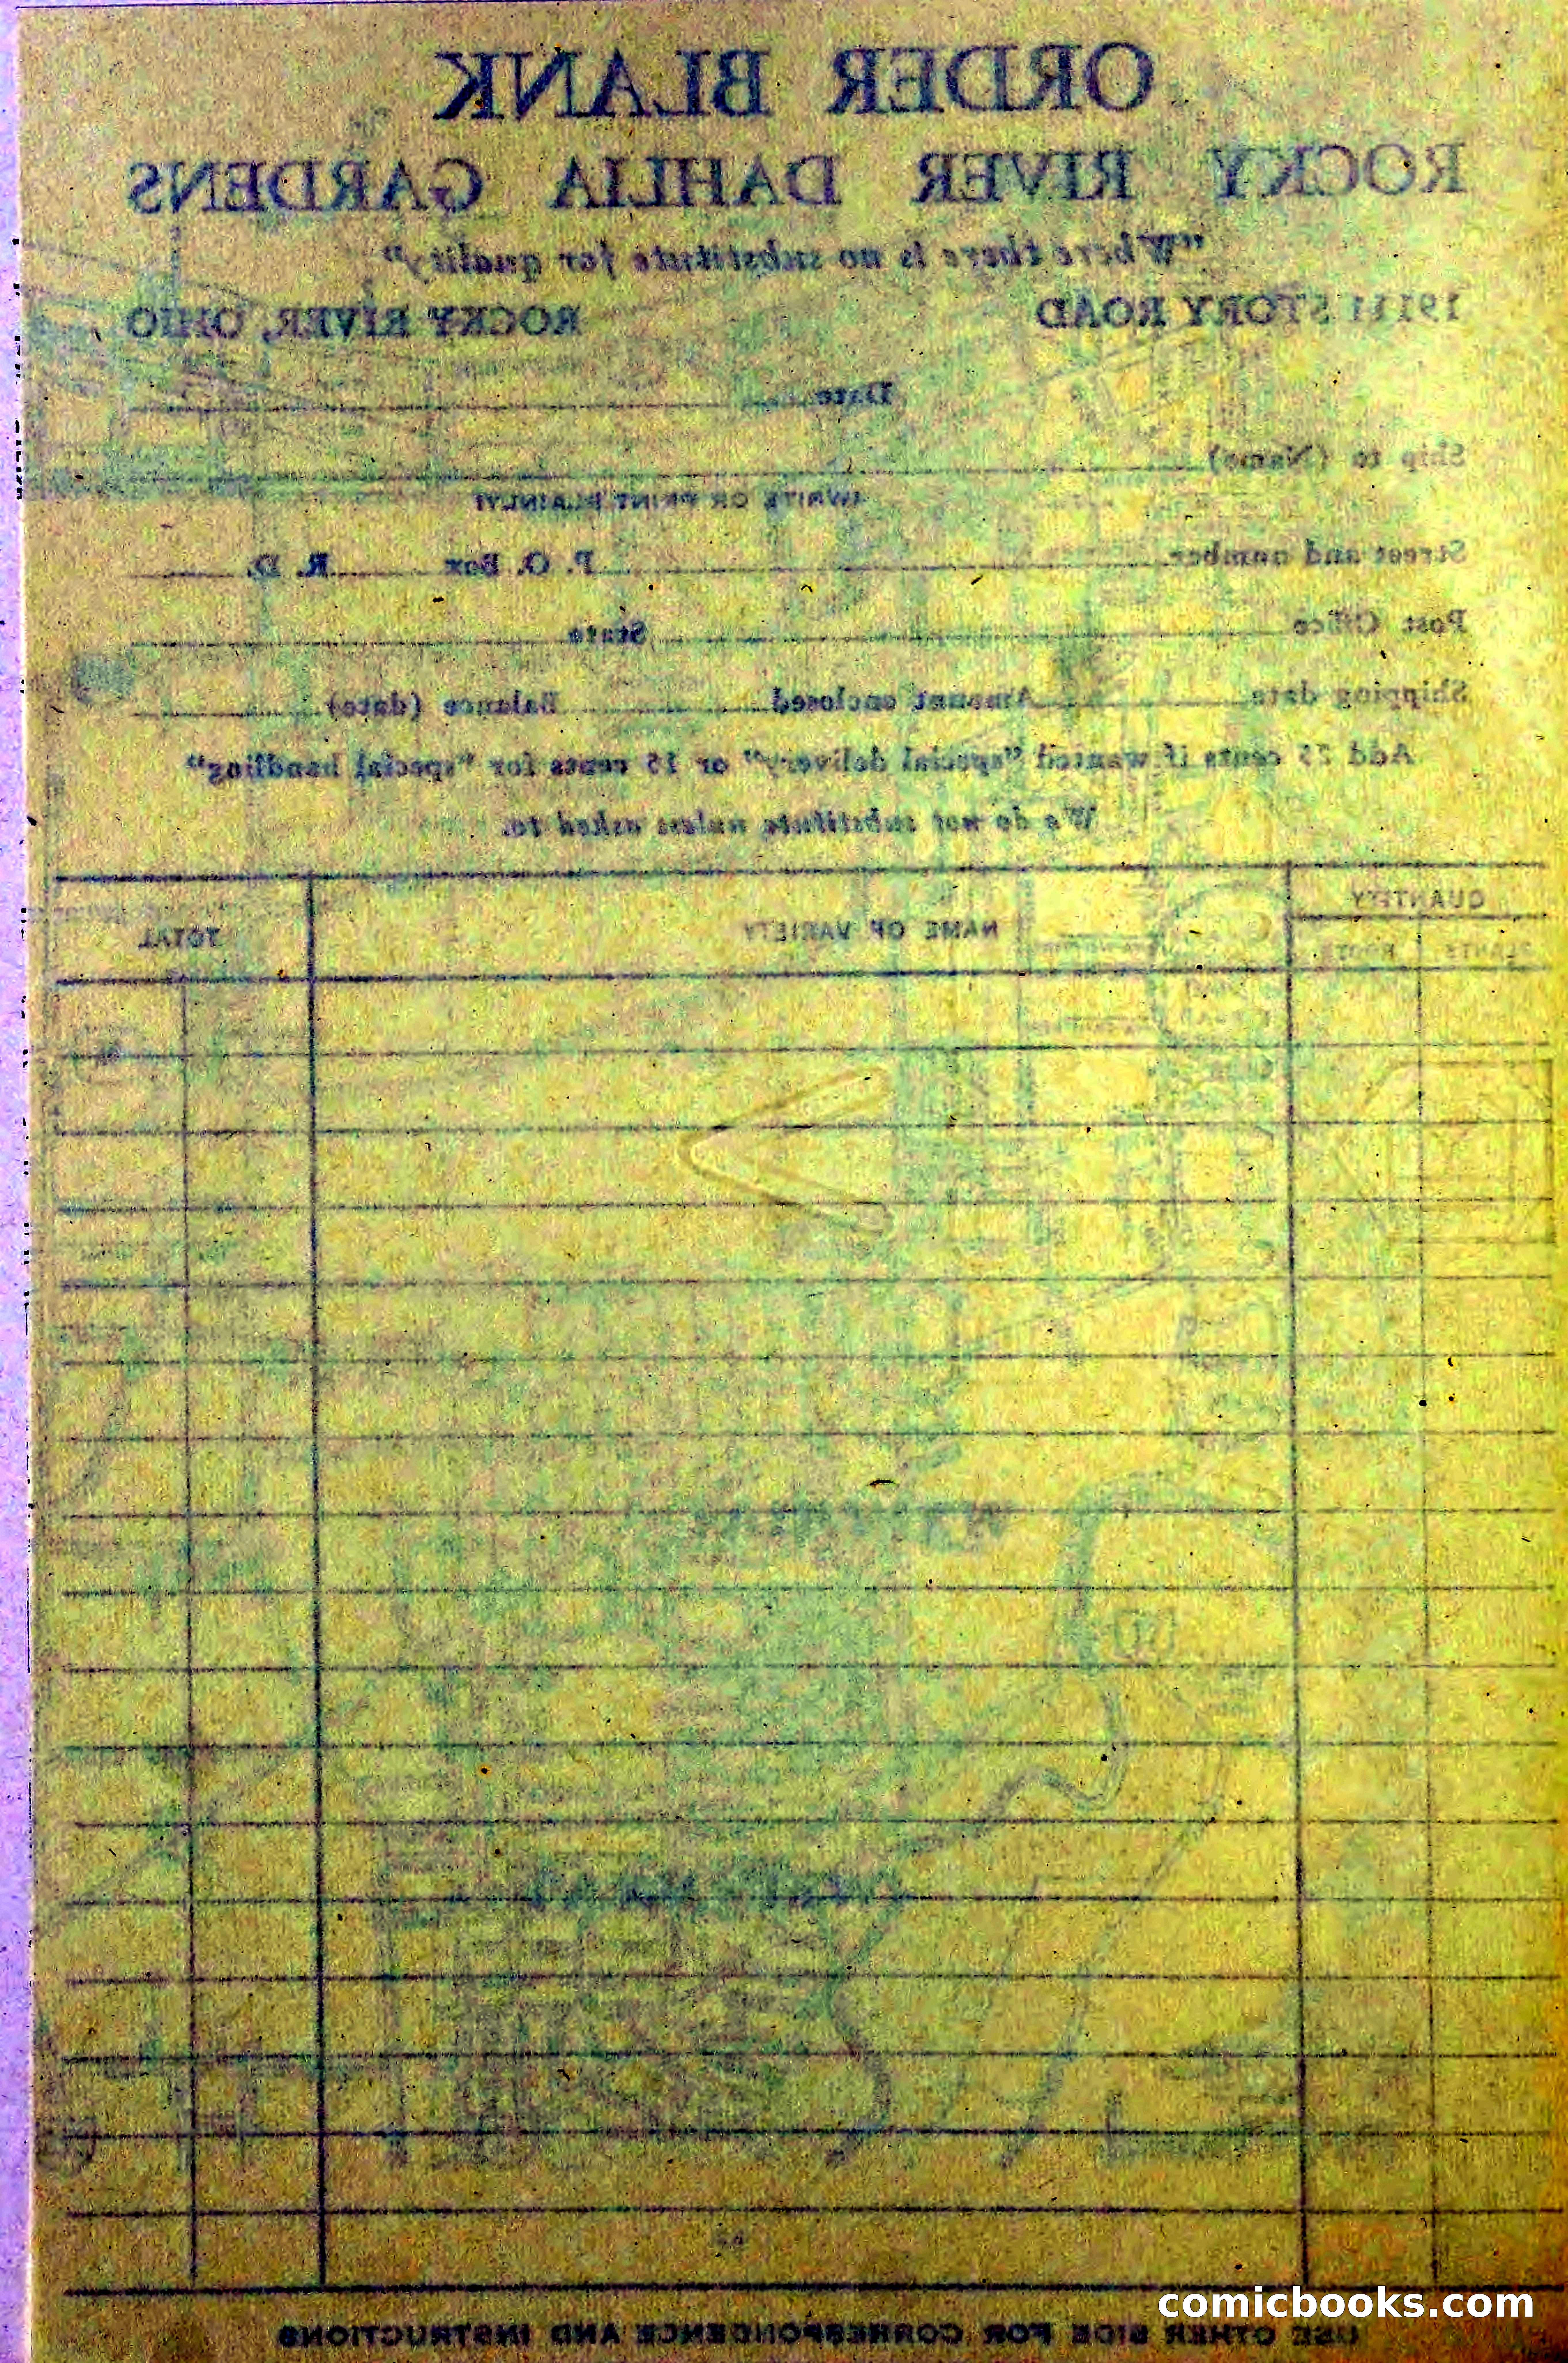 ORDER BLANK
ROCKY RIVER DAHLIA GARDENS
"Where there is no substitute for quality"
19111 STORY ROAD ROCKY RIVER, OHIO
Date
Ship to (Name)
(WRITE OR PRINT PLAINLY)
Street and number P. O. Box R. D.
Post Office State
Shipping date Amount enclosed Balance (date)
Add 25 cents if wanted "special delivery" or 15 cents for "special handling"
We do not substitute unless asked to.
QUANTITY
PLANTS ROOTS NAME OF VARIETY TOTAL
USE OTHER SIDE FOR CORRESPONDENCE AND INSTRUCTIONS
comicbooks.com